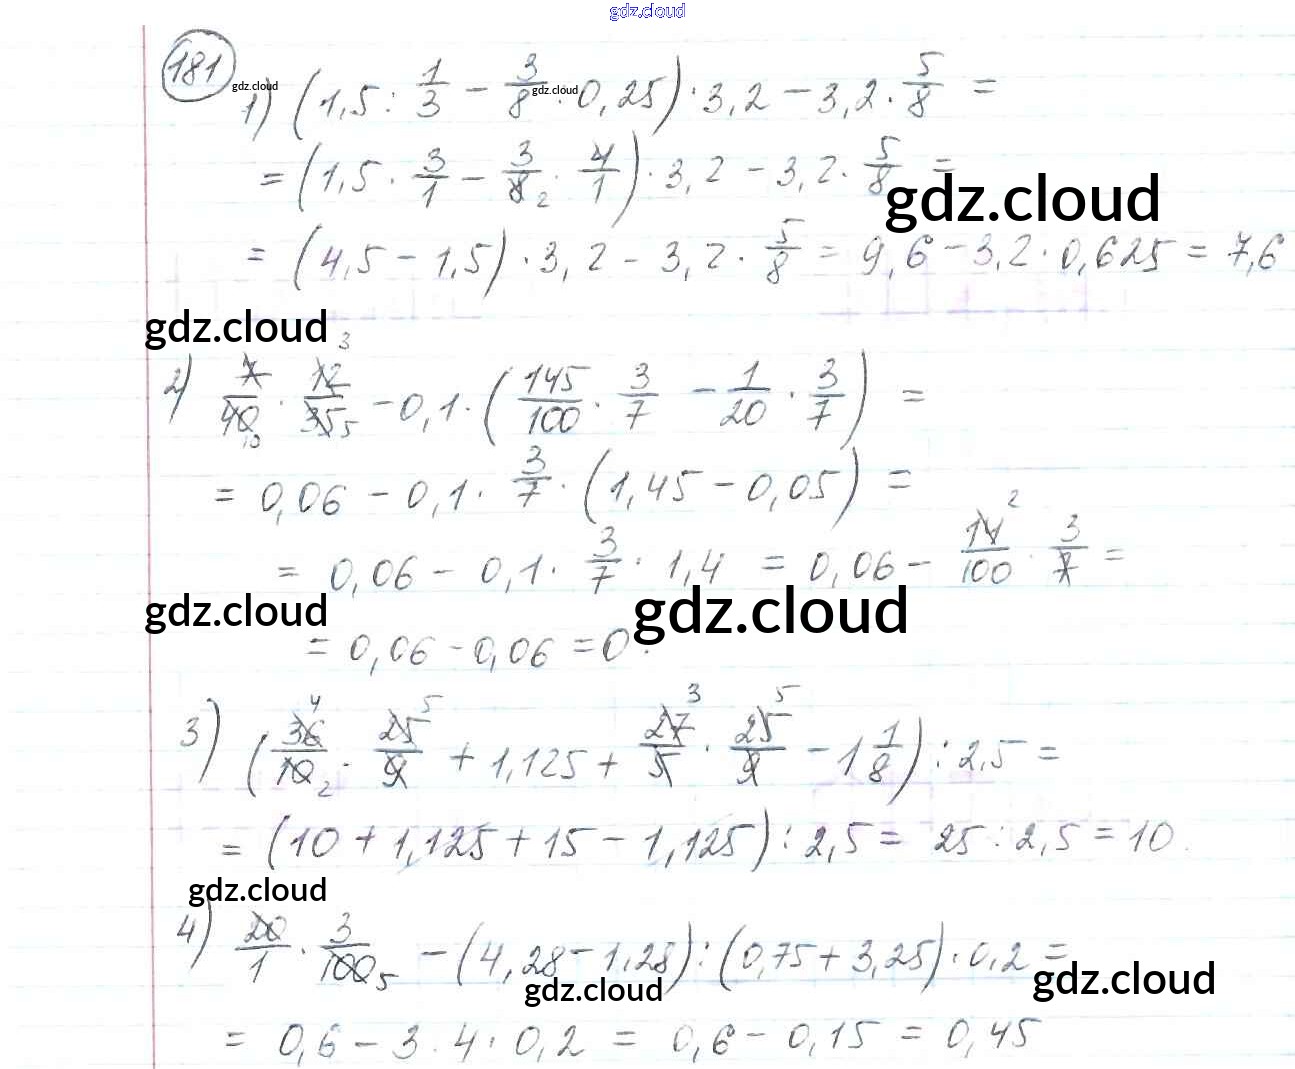 gdz.cloud
181 gdz.cloud gdz.cloud
1) (1,5 : 1/3 − 3/8 : 0,25) · 3,2 − 3,2 · 5/8 =
= (1,5 · 3/1 − 3/8 2 · 4/1) · 3,2 − 3,2 · 5/8 =
gdz.cloud
= (4,5 − 1,5) · 3,2 − 3,2 · 5/8 = 9,6 − 3,2 · 0,625 = 7,6
gdz.cloud
2) 7/40 10 · 12 3/35 5 − 0,1 · (145/100 · 3/7 − 1/20 · 3/7) =
= 0,06 − 0,1 · 3/7 · (1,45 − 0,05) =
= 0,06 − 0,1 · 3/7 · 1,4 = 0,06 − 14 2/100 · 3/7 =
gdz.cloud gdz.cloud
= 0,06 − 0,06 = 0.
3) (36 4/10 2 · 25 5/9 + 1,125 + 27 3/5 · 25 5/9 − 1 1/8) : 2,5 =
= (10 + 1,125 + 15 − 1,125) : 2,5 = 25 : 2,5 = 10.
gdz.cloud
4) 20/1 · 3/100 5 − (4,28 − 1,28) : (0,75 + 3,25) · 0,2 =
gdz.cloud gdz.cloud
= 0,6 − 3 : 4 · 0,2 = 0,6 − 0,15 = 0,45